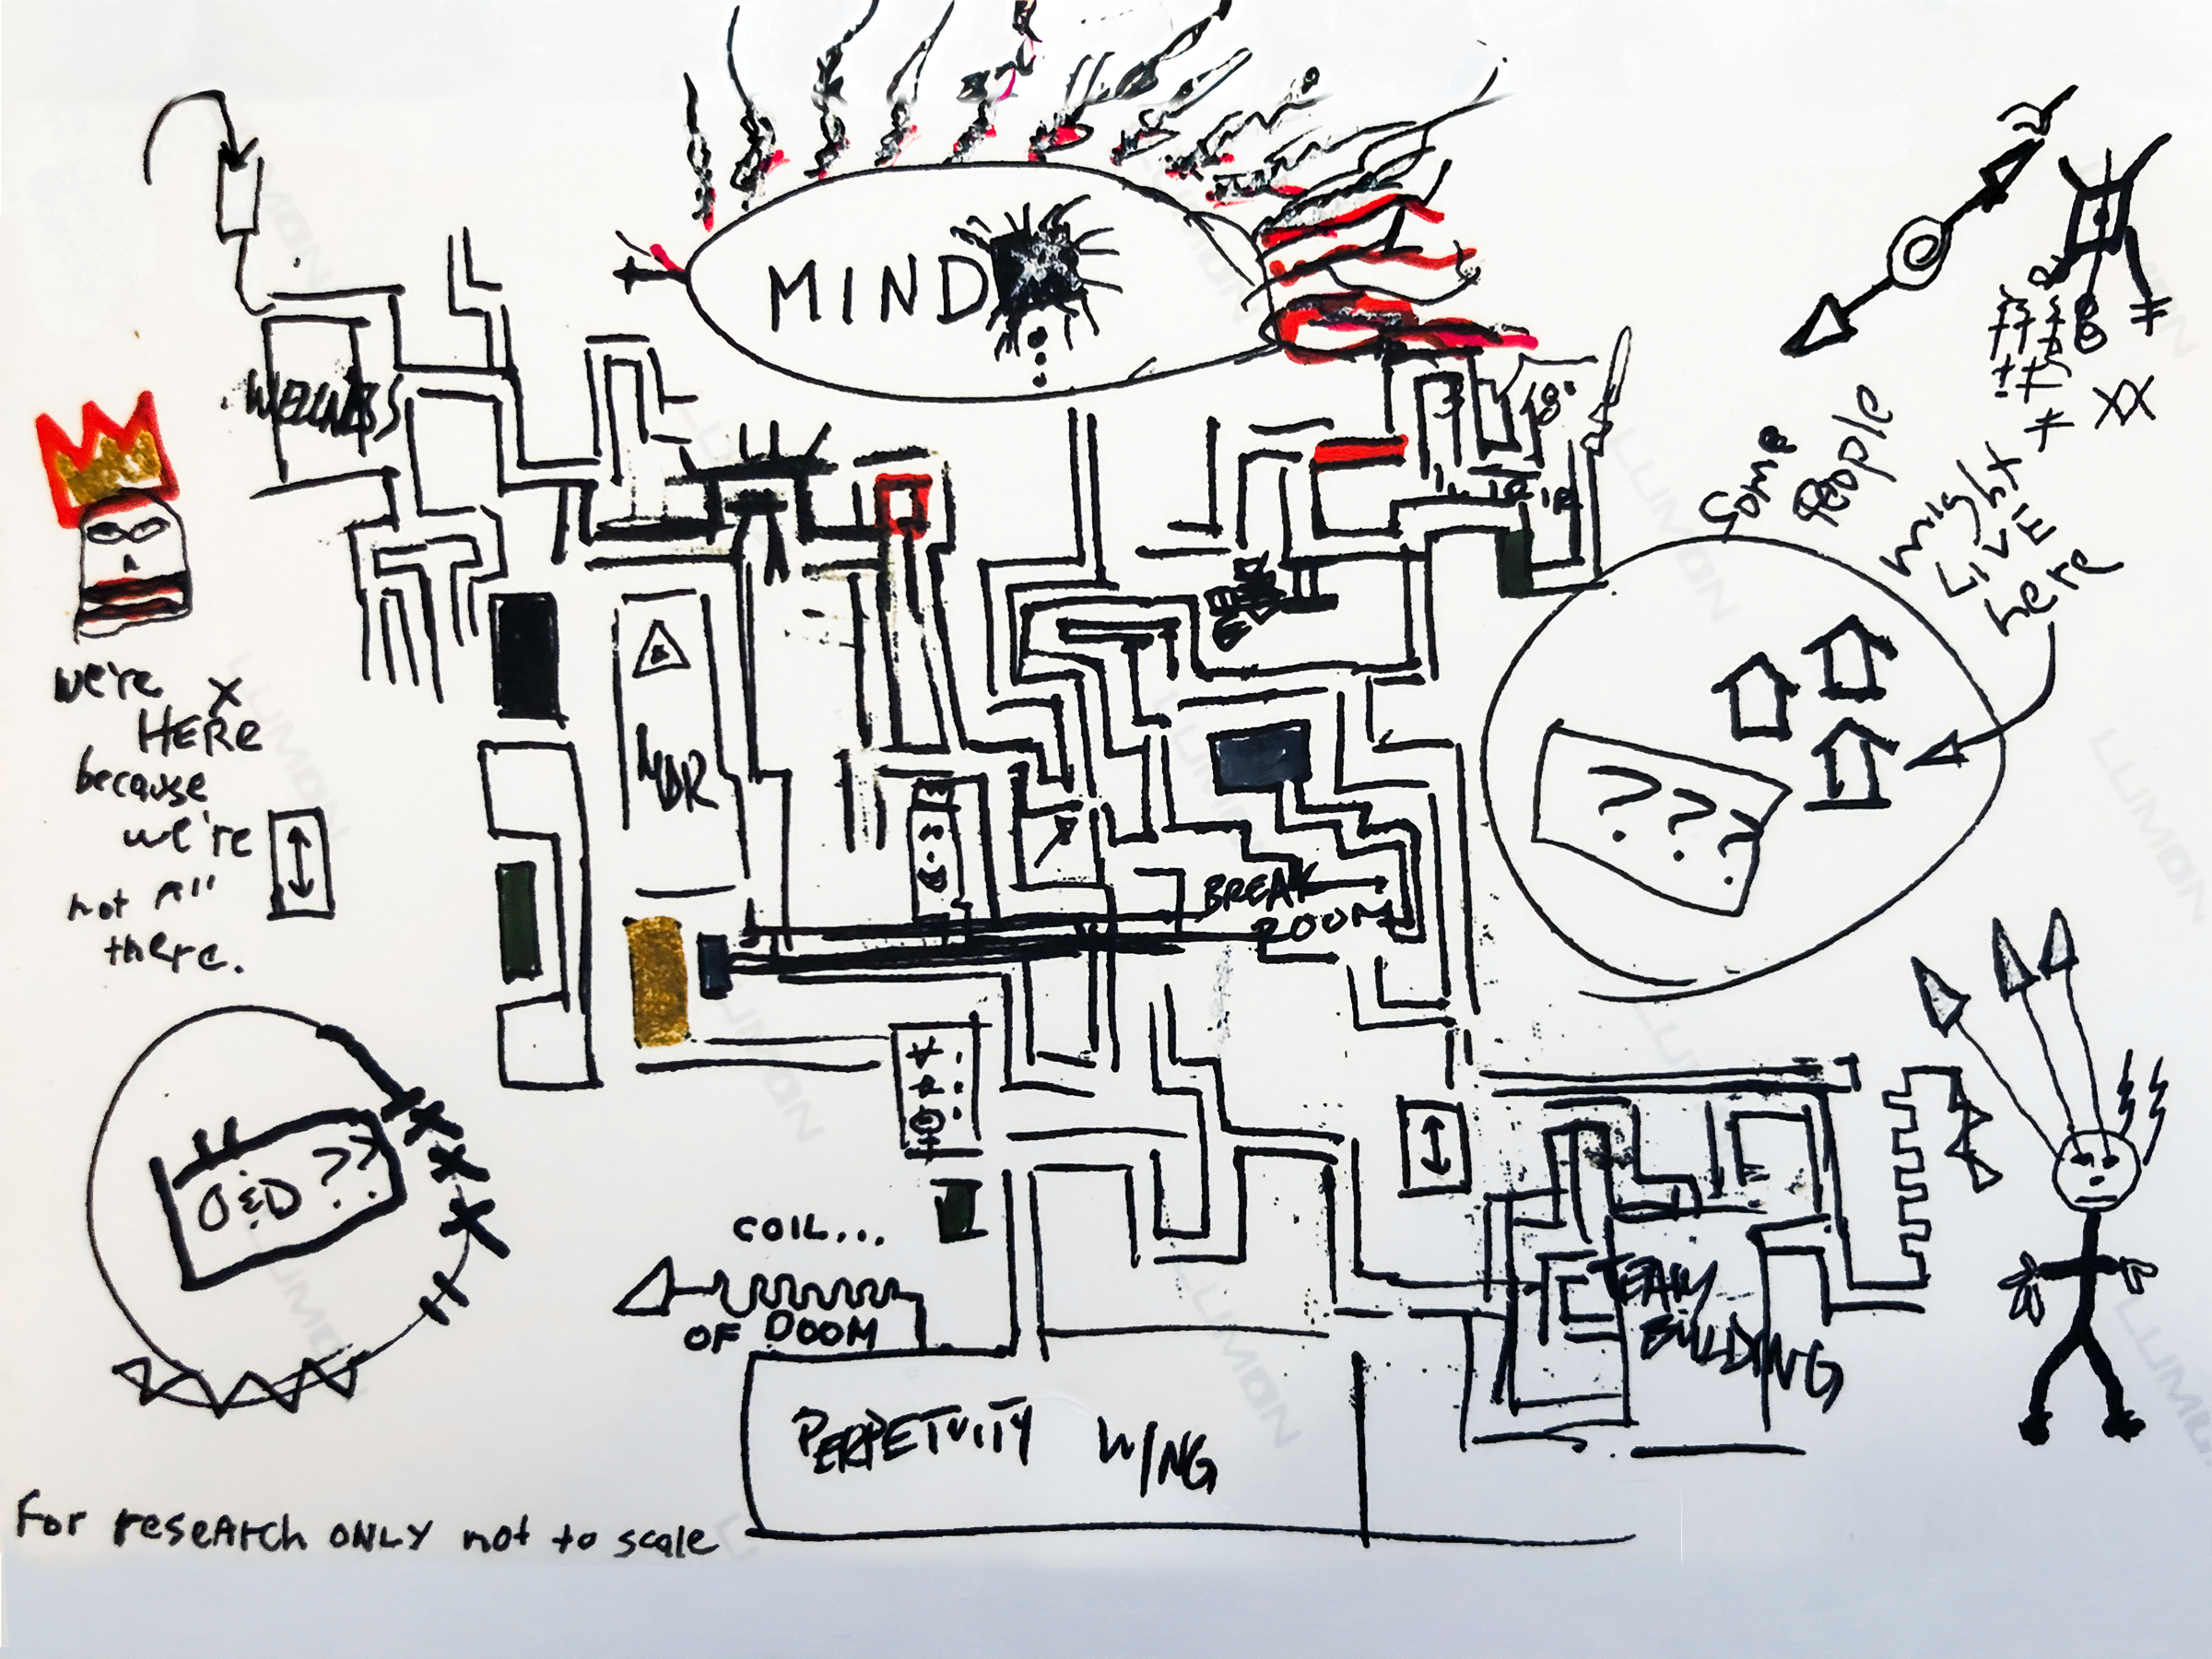 MIND
WELLNESS
Some
People
might
LIVE
here
we're
HERe
because
we're
not All
there.
MDR
? ? ?
BREAK
ROOM
O&D ??
COIL...
OF DOOM
TEAM
BUILDING
PERPETUITY WING
For reseArch ONLY not to scale
LUMON